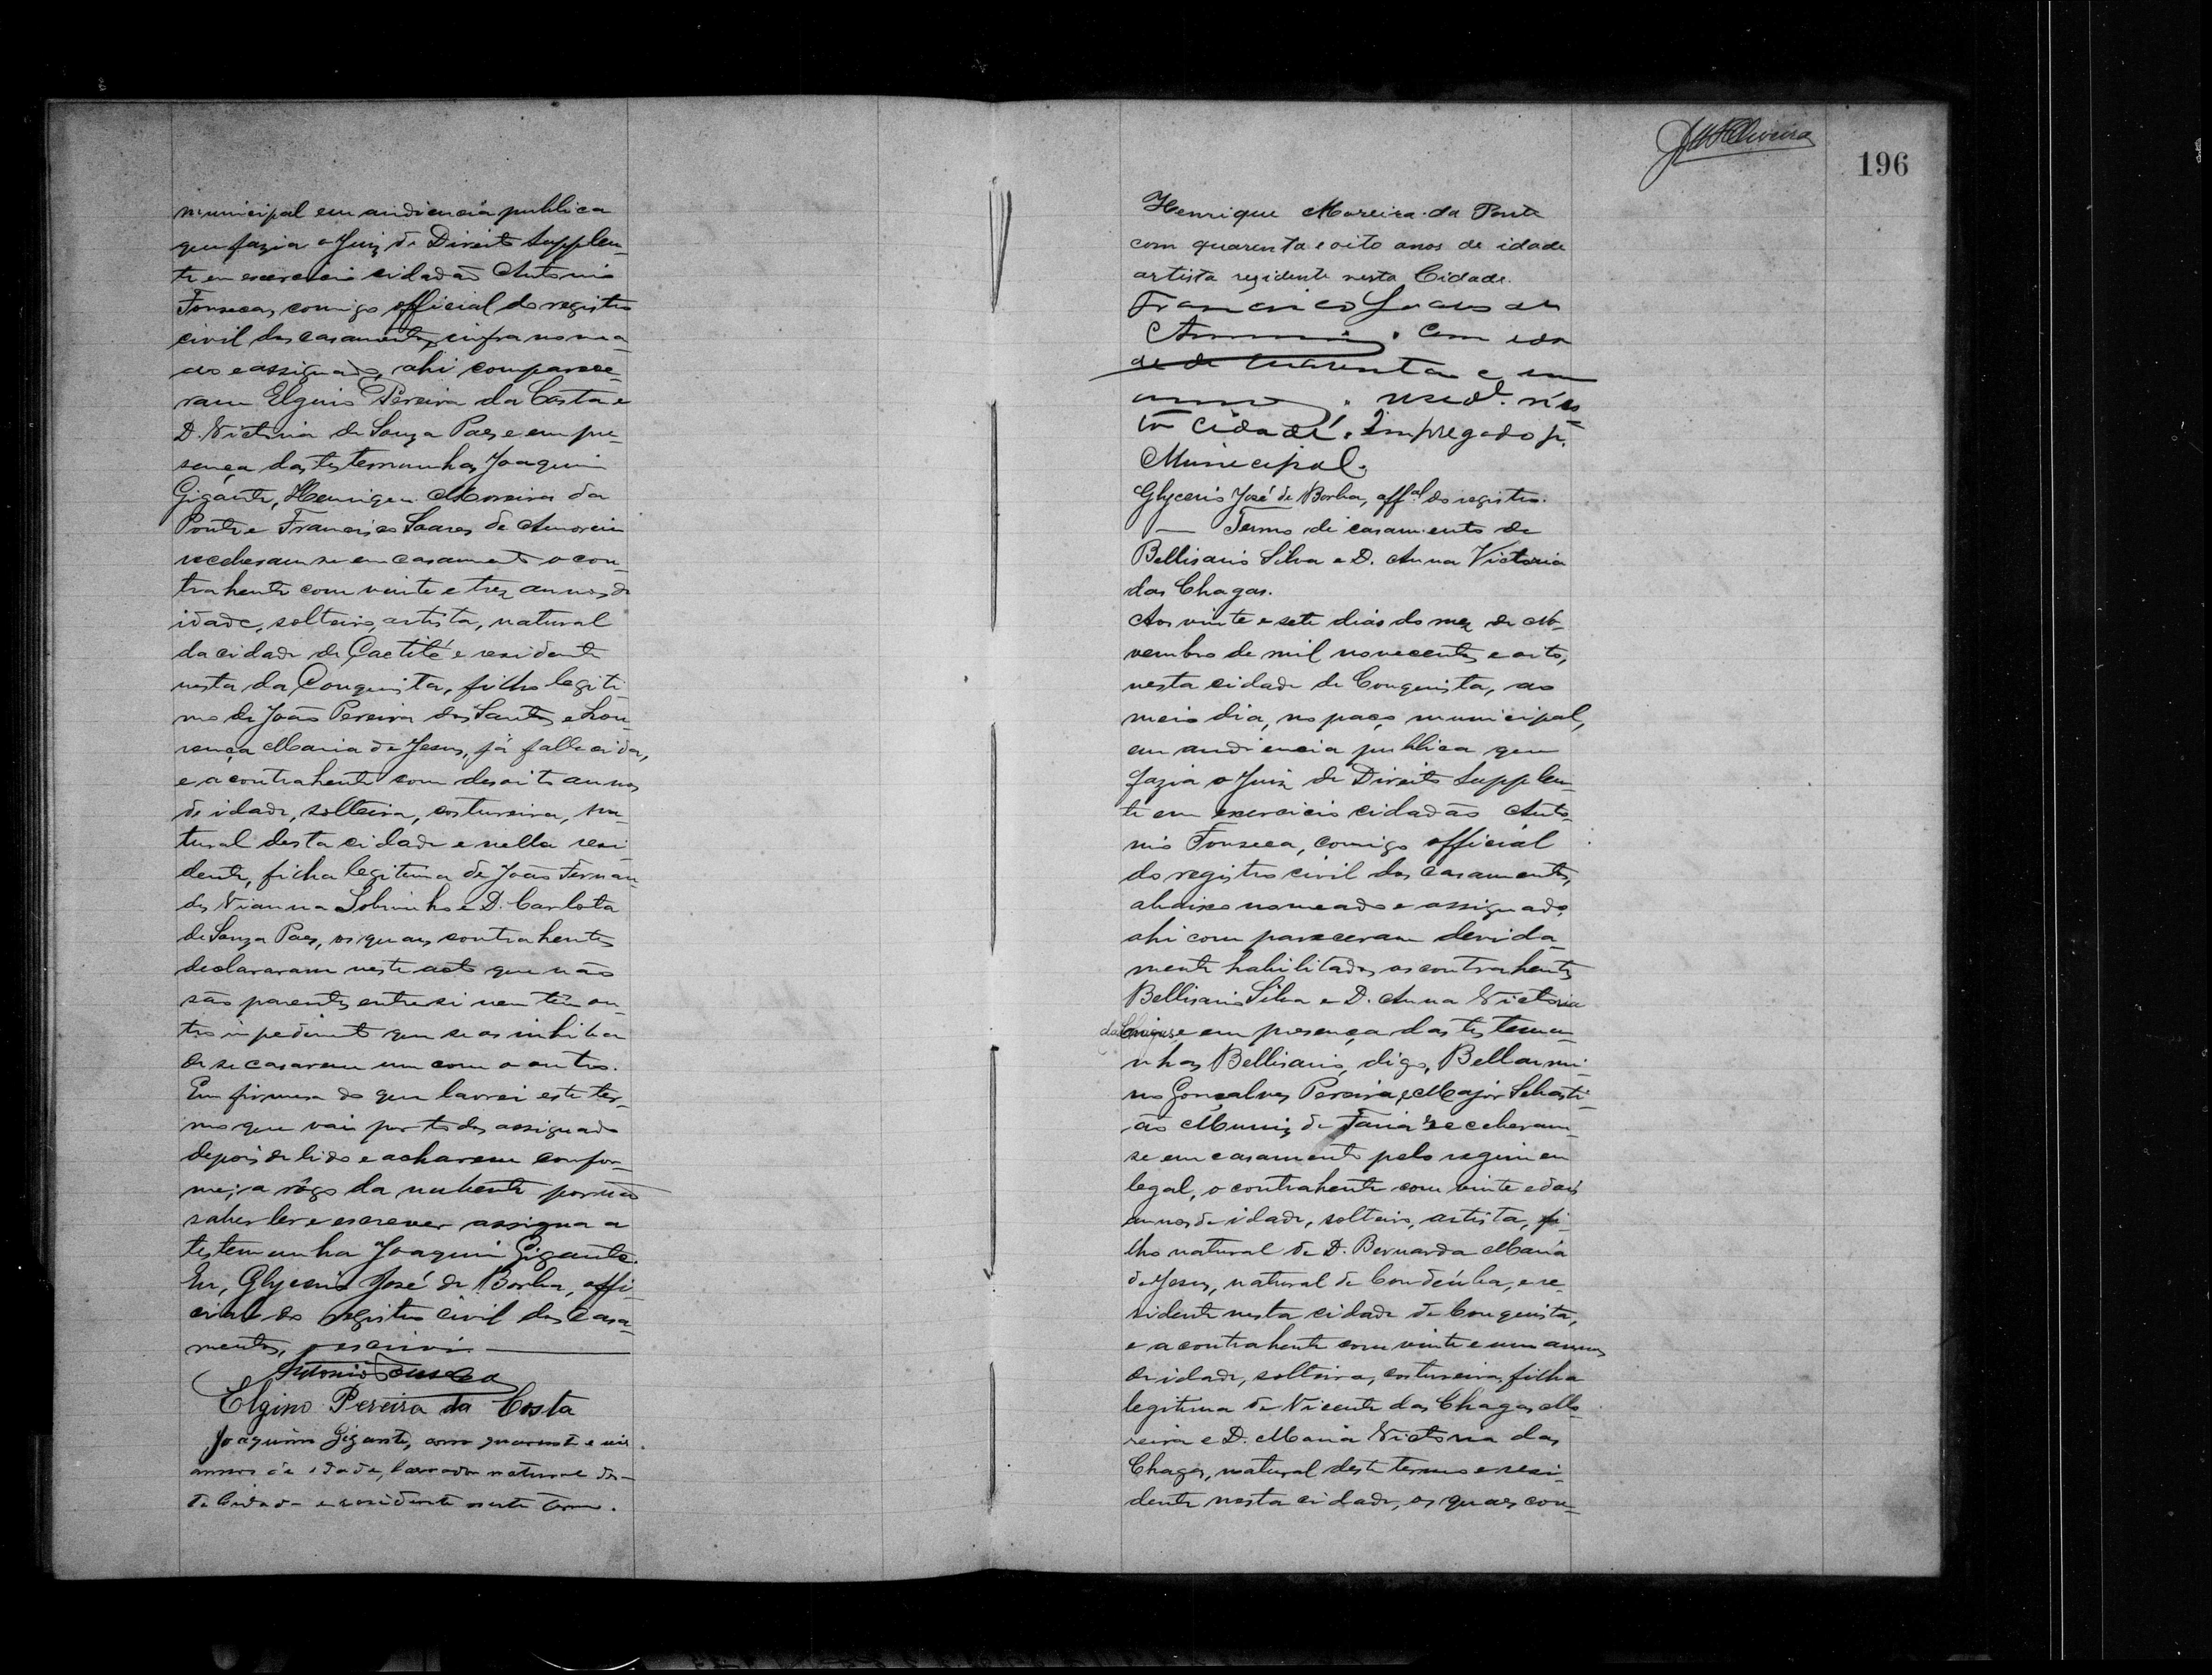 municipal em audiencia publica
que fazia o Juiz de Direito Supplen-
te em exercicio cidadão Antonio
Fonseca, comigo official do registro
civil dos casamentos, infra nomea-
do e assignado, ahi comparece-
ram Elgino Pereira da Costa e
D. Victoria de Souza Paes e em pre-
sença das testemunhas Joaquim
Gigante, Henrique Moreira da
Ponte e Francisco Soares de Amorim
receberam-se em casamento o con-
trahente com vinte e trez annos de
idade, solteiro, artista, natural
da cidade de Caetité e residente
nesta da Conquista, filho legiti-
mo de João Pereira dos Santos e Lou-
rença Maria de Jesus, já fallecidos,
e a contrahente com desoito annos
de idade, solteira, costureira, na-
tural desta cidade e nella resi-
dente, filha legitima de João Fernan-
des Vianna Sobrinho e D. Carlota
de Souza Paes, os quaes contrahentes
declararam neste acto que não
são parentes entre si nem têm ou-
tro impedimento que se os inhiba
de se casarem um com o outro.
Em firmesa do que lavrei este ter-
mo que vai por todos assignado
depois de lido e acharem confor-
me; a rôgo da nubente por não
saber ler e escrever assigna a
testemunha Joaquim Gigante.
Eu, Glycerio José de Borba, offi-
cial do registro civil dos casa-
mentos, o escrivi.
Antonio Fonseca
Elgino Pereira da Costa
Joaquim Gigante, com quarenta e seis
annos de idade, lavrador natural des-
ta Cidade e residente neste termo.
196
Henrique Moreira da Ponte
com quarenta e oito anos de idade
artista rezidente nesta Cidade.
Francisco Soares de
Amorim. Com ida
de de quarenta e um
annos. resid. nes
ta Cidade. Empregado p.
Municipal.
Glycerio José de Borba, off.al do registro.
— Termo de casamento de
Bellisario Silva e D. Anna Victoria
das Chagas.
Aos vinte e sete dias do mez de No-
vembro de mil novecentos e oito,
nesta cidade de Conquista, ao
meio dia, no paço municipal,
em audiencia publica que
fazia o Juiz de Direito Supplen-
te em exercicio cidadão Anto-
nio Fonseca, comigo official
do registro civil dos casamentos,
abaixo nomeado e assignado,
ahi compareceram devida-
mente habilitados os contrahentes
Bellisario Silva e D. Anna Victoria
das Chagas e em presença das testemu-
nhas Bellisario, digo, Bellarmi-
no Gonçalves Pereira e Major Sebasti-
ão Muniz de Faria receberam-
se em casamento pelo regimen
legal, o contrahente com vinte e dois
annos de idade, solteiro, artista, fi-
lho natural de D. Bernarda Maria
de Jesus, natural de Condeúba, e re-
sidente nesta cidade de Conquista,
e a contrahente com vinte e um annos
de idade, solteira, costureira, filha
legitima de Vicente das Chagas Mo-
reira e D. Maria Victoria das
Chagas, natural deste termo e resi-
dente nesta cidade, os quaes con-